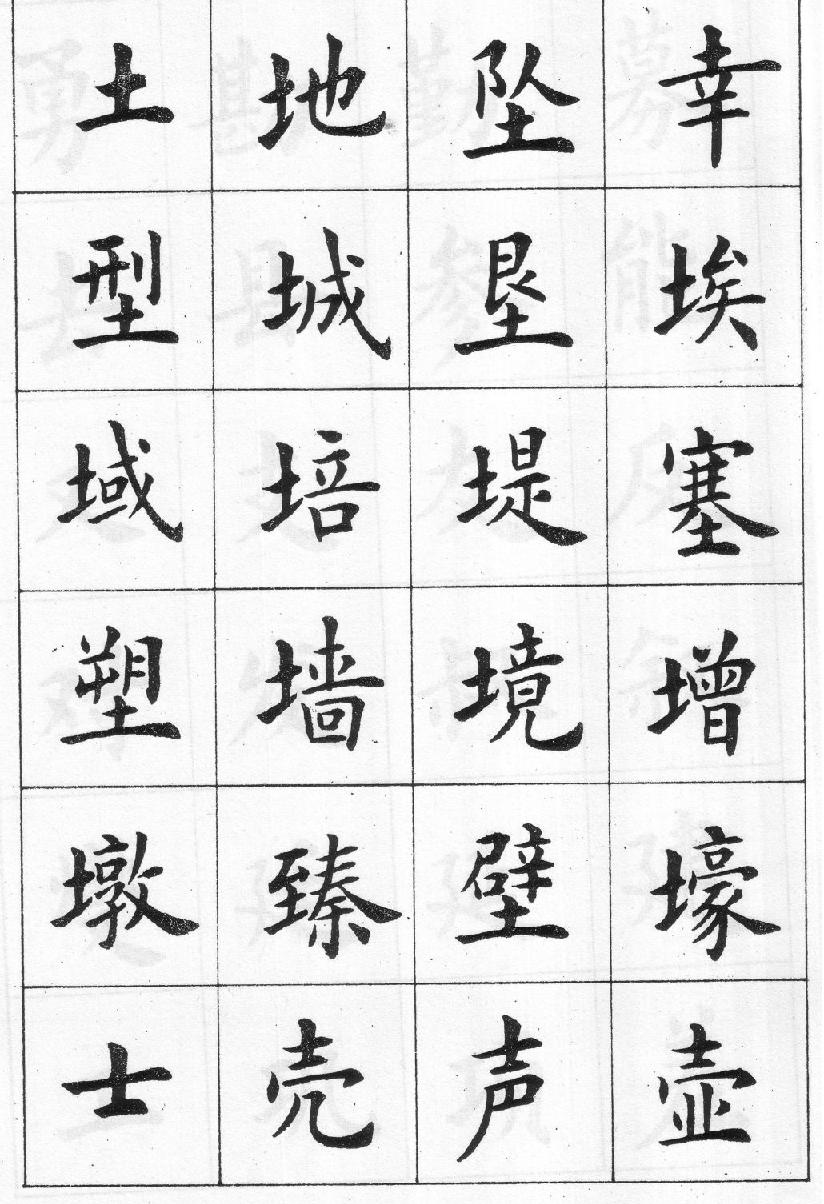 土 地 坠 幸
型 城 垦 埃
域 培 堤 塞
塑 墙 境 增
墩 臻 壁 壕
士 壳 声 壶